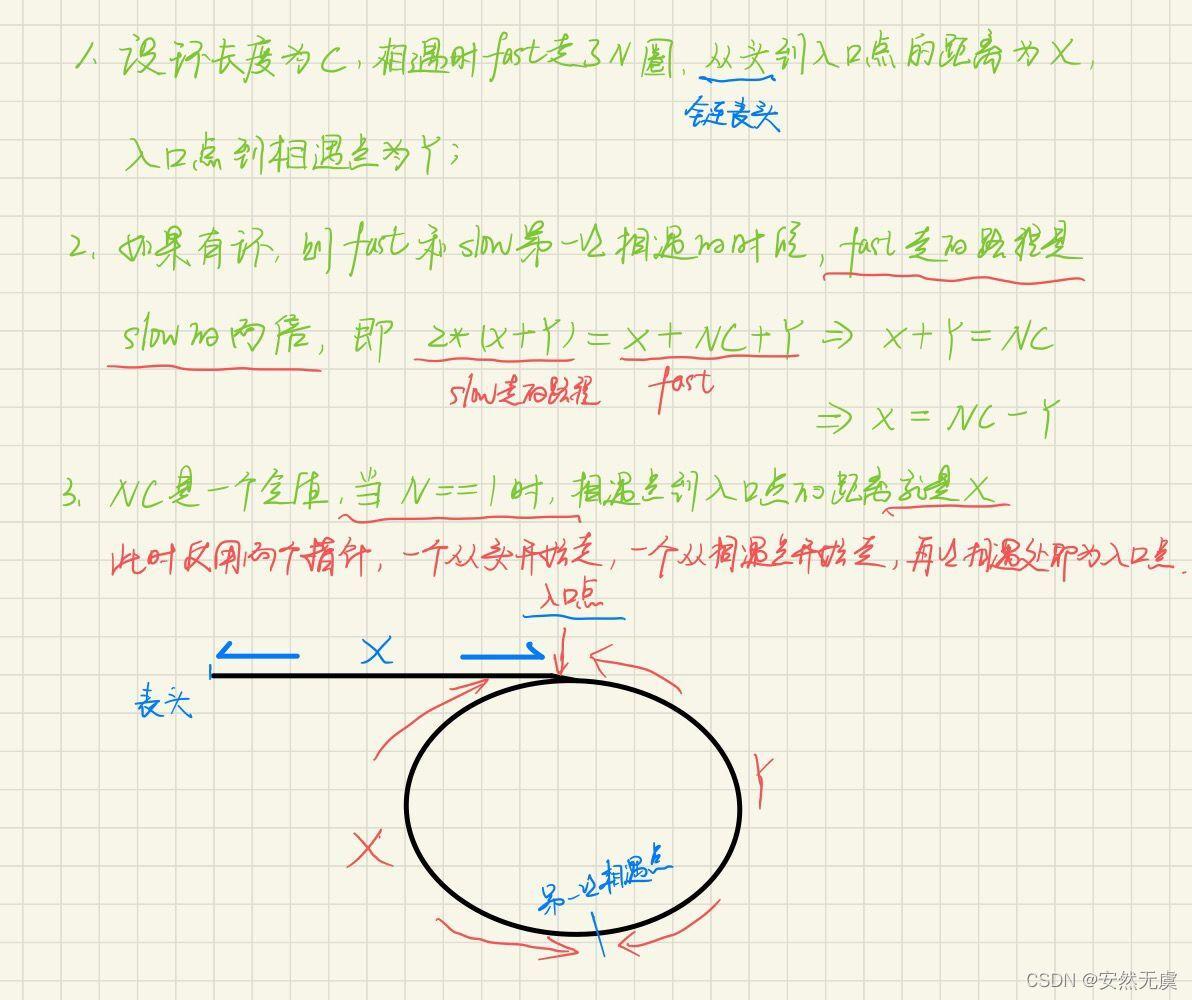 1、设环长度为C,相遇时fast走了N圈,从头到入口点的距离为X,
全链表头
入口点到相遇点为Y;
2、如果有环,则fast和slow第一次相遇的时候,fast走的路程是
slow的两倍,即 2*(X+Y)=X+NC+Y ⇒ X+Y=NC
slow走的路程 fast
⇒ X=NC-Y
3、NC是一个定值,当N==1时,相遇点到入口点的距离就是X
此时反用两个指针,一个从头开始走,一个从相遇点开始走,再次相遇处即为入口点.
入口点
X
表头
Y
X
第一次相遇点
CSDN @安然无虞